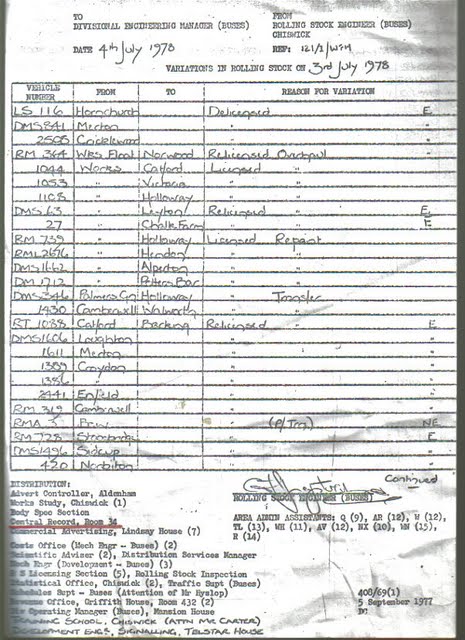 TO FROM
DIVISIONAL ENGINEERING MANAGER (BUSES) ROLLING STOCK ENGINEER (BUSES)
CHISWICK
DATE 4th July 1978 REF: 121/1/WSH
VARIATIONS IN ROLLING STOCK ON 3rd July 1978
VEHICLE NUMBER FROM TO REASON FOR VARIATION
LS 116 Hornchurch Delicensed E
DMS 841 Merton " "
2505 Cricklewood " "
RM 364 Wks Float Norwood Relicensed Overhaul
1044 Works Catford Licensed "
1053 " Victoria " "
1108 " Holloway " "
DMS 63 " Leyton Relicensed " E
27 " Chalk Farm " " E
RM 739 " Holloway Licensed Repaint
RML 2676 " Hendon " "
DMS 1662 " Alperton " "
DM 1712 " Potters Bar " "
DMS 346 Palmers Gn Holloway " Transfer
1430 Camberwell Walworth " "
RT 1088 Catford Barking Relicensed " E
DMS 1606 Loughton " "
1611 Merton " "
1389 Croydon " "
1386 " " "
2441 Enfield " "
RM 319 Camberwell " "
RMA 3 " (P/Trn) NE
RM 728 Stonebridge " " E
DMS 1496 Sidcup " "
420 Norbiton " "
Continued
DISTRIBUTION:
Advert Controller, Aldenham
Works Study, Chiswick (1)
Body Spec Section
Central Record, Room 34
Commercial Advertising, Lindsay House (7)
Costs Office (Mech Engr - Buses) (2)
Scientific Adviser (2), Distribution Services Manager
Mech Engr (Development - Buses) (3)
R S Licensing Section (5), Rolling Stock Inspection
Statistical Office, Chiswick (2), Traffic Supt (Buses)
Schedules Supt - Buses (Attention of Mr Hyslop)
Revenue Office, Griffith House, Room 432 (2)
Operating Manager (Buses), Mansion House
TRAINING SCHOOL, CHISWICK (ATTN MR CARTER)
DEVELOPMENT ENG, SIGNALLING, TELSTAR HOUSE
ROLLING STOCK ENGINEER (BUSES)
AREA ADMIN ASSISTANTS: Q (9), AR (12), W (12),
TL (13), WH (11), AV (12), NX (10), WN (15),
R (14)
408/69(1)
5 September 1977